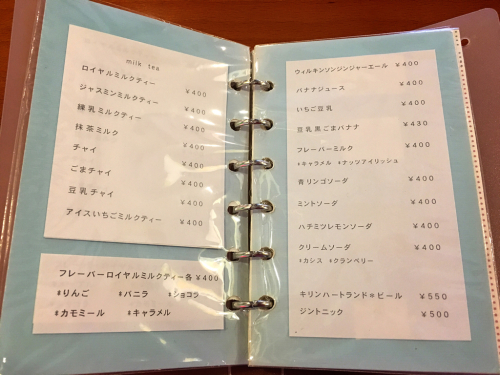 milk tea
ロイヤルミルクティー ¥400
ジャスミンミルクティー ¥400
練乳ミルクティー ¥400
抹茶ミルク ¥400
チャイ ¥400
ごまチャイ ¥400
豆乳チャイ ¥400
アイスいちごミルクティー ¥400
フレーバーロイヤルミルクティー各 ¥400
*りんご *バニラ *ショコラ
*カモミール *キャラメル
ウィルキンソンジンジャーエール ¥400
バナナジュース ¥400
いちご豆乳 ¥400
豆乳黒ごまバナナ ¥430
フレーバーミルク ¥400
*キャラメル *ナッツアイリッシュ
青リンゴソーダ ¥400
ミントソーダ ¥400
ハチミツレモンソーダ ¥400
クリームソーダ ¥400
*カシス *クランベリー
キリンハートランド*ビール ¥550
ジントニック ¥500